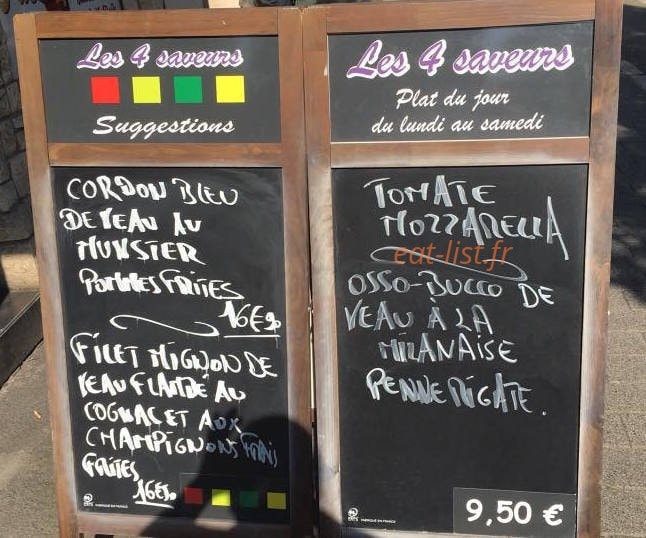 Les 4 saveurs
Suggestions
CORDON BLEU
DE VEAU AU
MUNSTER
POMMES FRITES
16€90
FILET MIGNON DE
VEAU FLAMBÉ AU
COGNAC ET AUX
CHAMPIGNONS FRAIS
FRITES
16€90
FABRIQUÉ EN FRANCE
Les 4 saveurs
Plat du jour
du lundi au samedi
TOMATE
MOZZARELLA
eat-list.fr
OSSO-BUCCO DE
VEAU À LA
MILANAISE
PENNE RIGATE.
FABRIQUÉ EN FRANCE
9,50 €